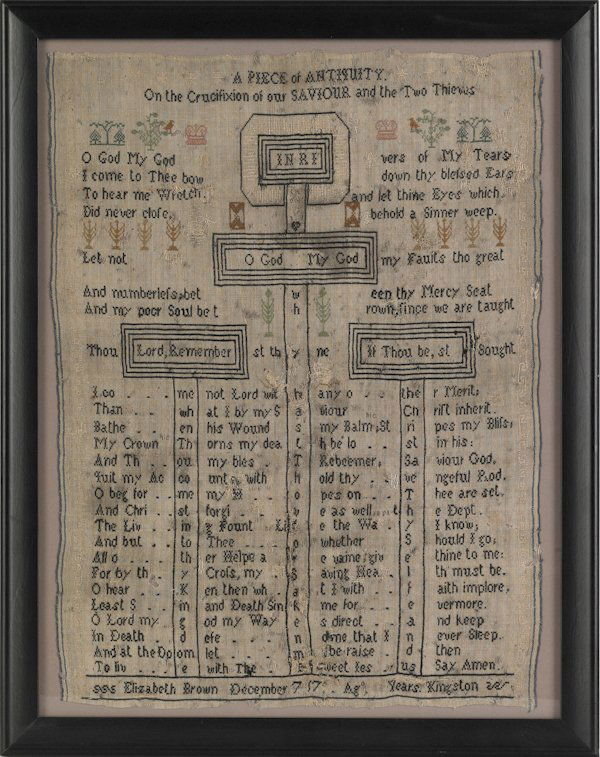 A PIECE of ANTIQUITY.
On the Crucifixion of our SAVIOUR and the Two Thieves
O God My God INRI vers of My Tears
I come to Thee bow down thy blessed Ears
To hear me Wretch. and let thine Eyes which.
Did never close. behold a Sinner weep.
Let not O God My God my Faults tho great
And numberless, bet w een thy Mercy Seat
And my poor Soul be t h rown, since we are taught
Thou Lord, Remember st th y ne If Thou be, st Sought
I co me not Lord wit h any o the r Merit;
Than wh at I by my S a viour Ch rist inherit.
Bathe en his Wound s my Balm; St ri pes my Bliss;
My Crown Th orns my dea t h be lo st in his:
And Th ou my bles T Redeemer; Sa viour God,
Quit my Ac co unt with hold thy ve ngeful Rod.
O beg for me my H o pes on T hee are set.
And Chri st forgi v e as well t he Dept.
The Liv in g Fount Life the Wa y I know;
And but to Thee o whether S hould I go;
All o th er Helpe a r e vaine; giv e thine to me:
For by th y Cross, my S aving Hea l th must be.
O hear K en then wh a t I with f aith implore,
Least S in and Death Sin k me for e vermore.
O Lord my g od my Way e s direct a nd keep
In Death d efe n dme that I n ever Sleep.
And at the Doom let m be raise d then
To liv e with The E Sweet Jes us Say Amen.
Elizabeth Brown December 7 17 Age Years. Kingston